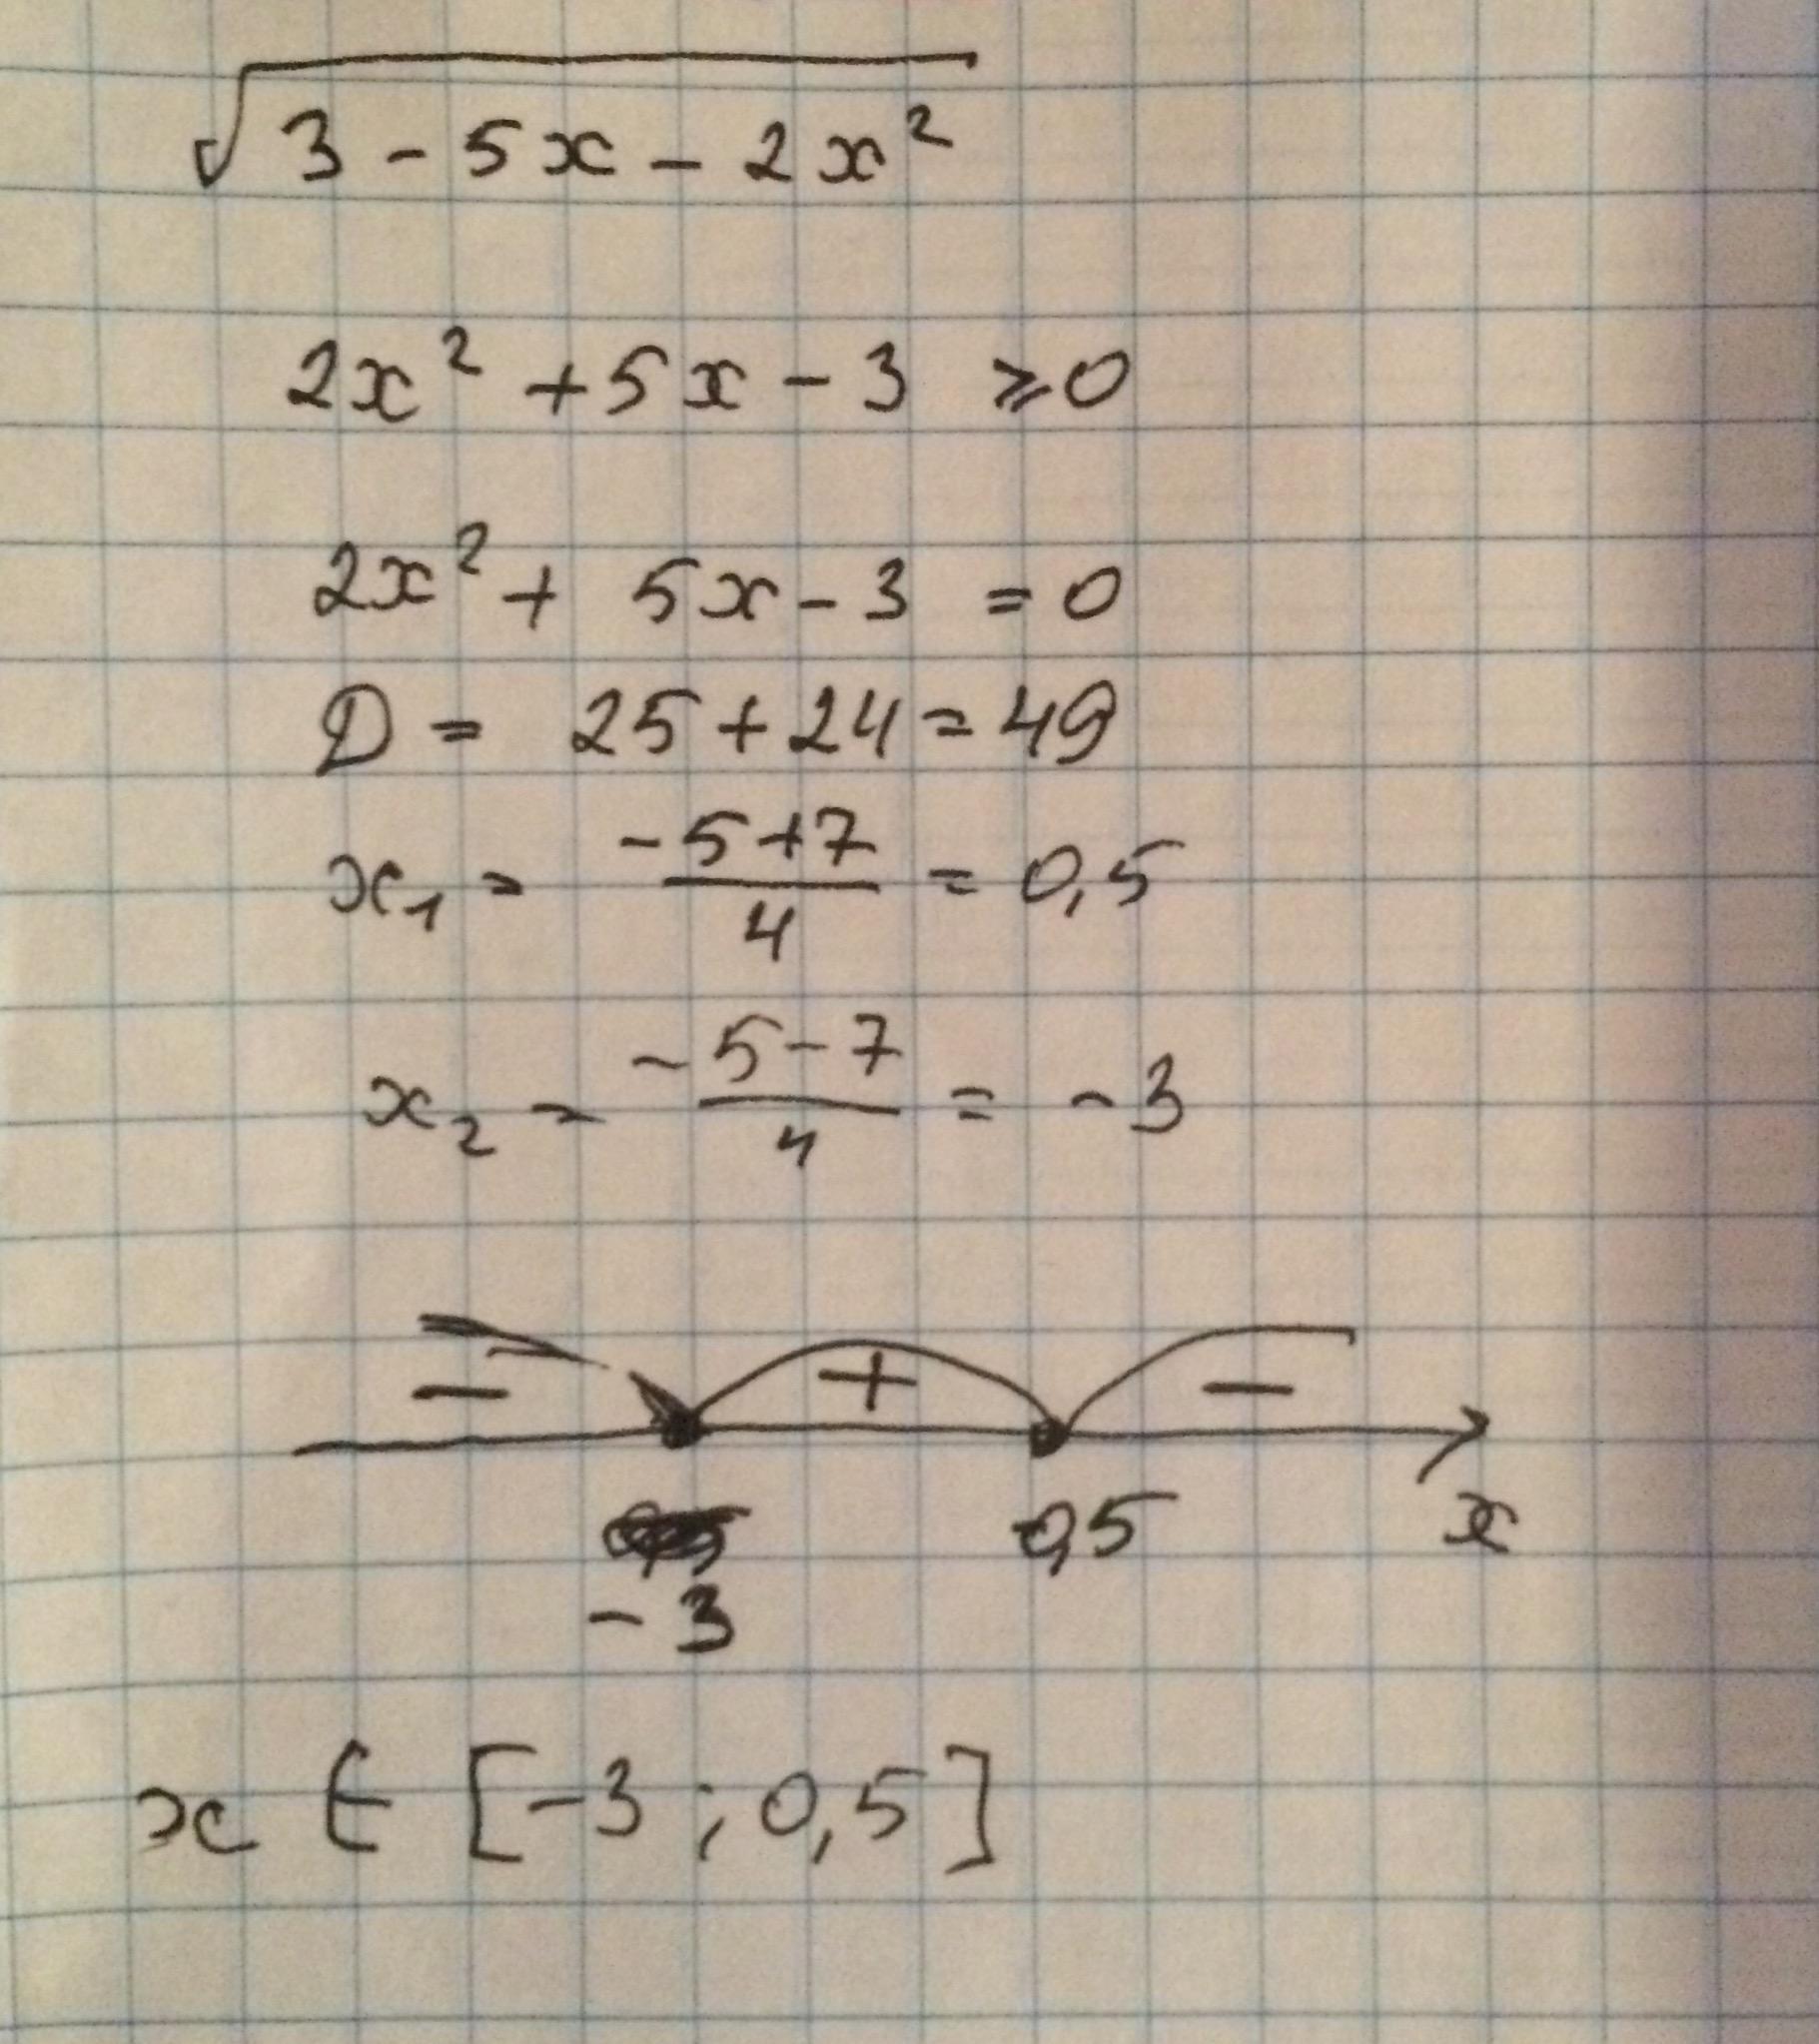 √(3 - 5x - 2x²)
2x² + 5x - 3 ⩾ 0
2x² + 5x - 3 = 0
D = 25 + 24 = 49
x₁ = (-5+7)/4 = 0,5
x₂ = (-5-7)/4 = -3
- + -
0,5 x
-3
x ∈ [-3; 0,5]